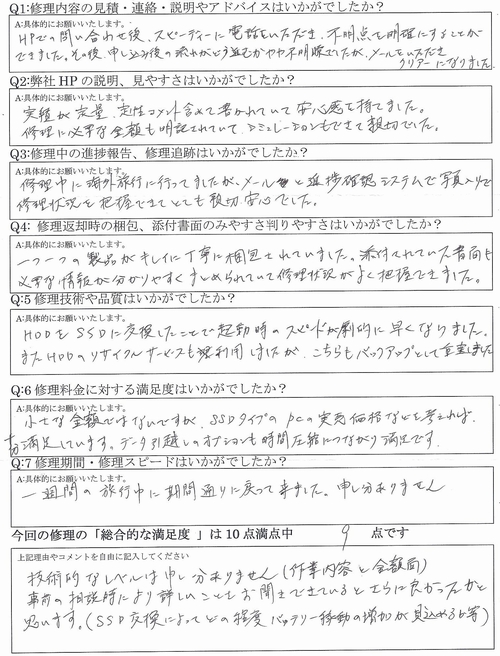 Q1:修理内容の見積・連絡・説明やアドバイスはいかがでしたか？
A:具体的にお願いいたします。
HPでの問い合わせ後、スピーディーに電話をいただき、不明点を明確にすることが
できました。その後、申し込み後の流れがどう進むかやや不明瞭でしたが、メールをいただき
クリアーになりました。
Q2:弊社HPの説明、見やすさはいかがでしたか？
A:具体的にお願いいたします。
実績が定量、定性コメント含めて書かれていて安心感を持てました。
修理に必要な金額も明記されていて、シミュレーションもできて親切でした。
Q3:修理中の進捗報告、修理追跡はいかがでしたか？
A:具体的にお願いいたします。
修理中に海外旅行に行ってましたが、メールと進捗確認システムで写真入りで
修理状況を把握できてとても親切、安心でした。
Q4: 修理返却時の梱包、添付書面のみやすさ判りやすさはいかがでしたか？
A:具体的にお願いいたします。
一つ一つの製品がキレイに丁寧に梱包されていました。添付されていた書面も
必要な情報が分かりやすくまとめられていて修理状況がよく把握できました。
Q:5 修理技術や品質はいかがでしたか？
A:具体的にお願いいたします。
HDDをSSDに交換したことで起動時のスピードが劇的に早くなりました。
またHDDのリサイクルサービスも利用しましたが、こちらもバックアップとして重宝しました
Q:6 修理料金に対する満足度はいかがでしたか？
A:具体的にお願いいたします。
小さな金額ではないですが、SSDタイプのpcの実売価格などを考えれば、
十分満足しています。データ引越しのオプションも時間圧縮につながり満足です。
Q:7 修理期間・修理スピードはいかがでしたか？
A:具体的にお願いいたします。
一週間の旅行中に期間通りに戻って来ました。申し分ありません
今回の修理の「総合的な満足度 」は 10 点満点中 9 点です
上記理由やコメントを自由に記入してください
技術的なレベルは申し分ありません（作業内容と金額面）
事前の相談時により詳しいこともお聞きできているとさらに良かったかと
思います。（SSD交換によってどの程度バッテリー稼動の増加が見込めるか等）